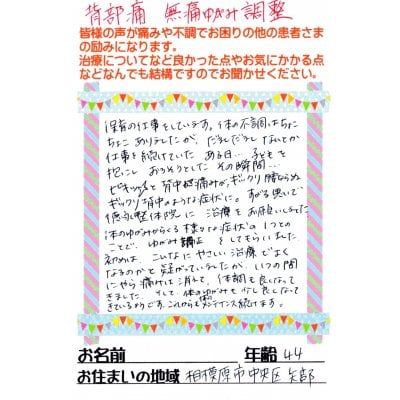 背部痛 無痛ゆがみ調整
皆様の声が痛みや不調でお困りの他の患者さま
の励みになります。
治療についてなど良かった点やお気にかかる点
などなんでも結構ですのでお聞かせください。
保育の仕事をしています。体の不調はちょこ
ちょこありましたが、だましだましなんとか
仕事を続けていたある日… 子どもを
抱っこしおろそうとしたその瞬間…
ビキッっと背中に痛みが。ギックリ腰ならぬ
ギックリ背中のような症状に。すがる思いで
整体院に治療をお願いしました。
体のゆがみからくる様々な症状の1つとの
ことで、ゆがみ調正をしてもらいました。
初めは、こんなにやさしい治療でよく
なるのかと疑がっていましたが、いつの間
にやら痛みは消えて、体調も良くなって
きました。そして、体のゆがみも少し良くなって
きているようです。これからもメンテナンス続けます。
お名前 年齢 44
お住まいの地域 相模原市中央区矢部